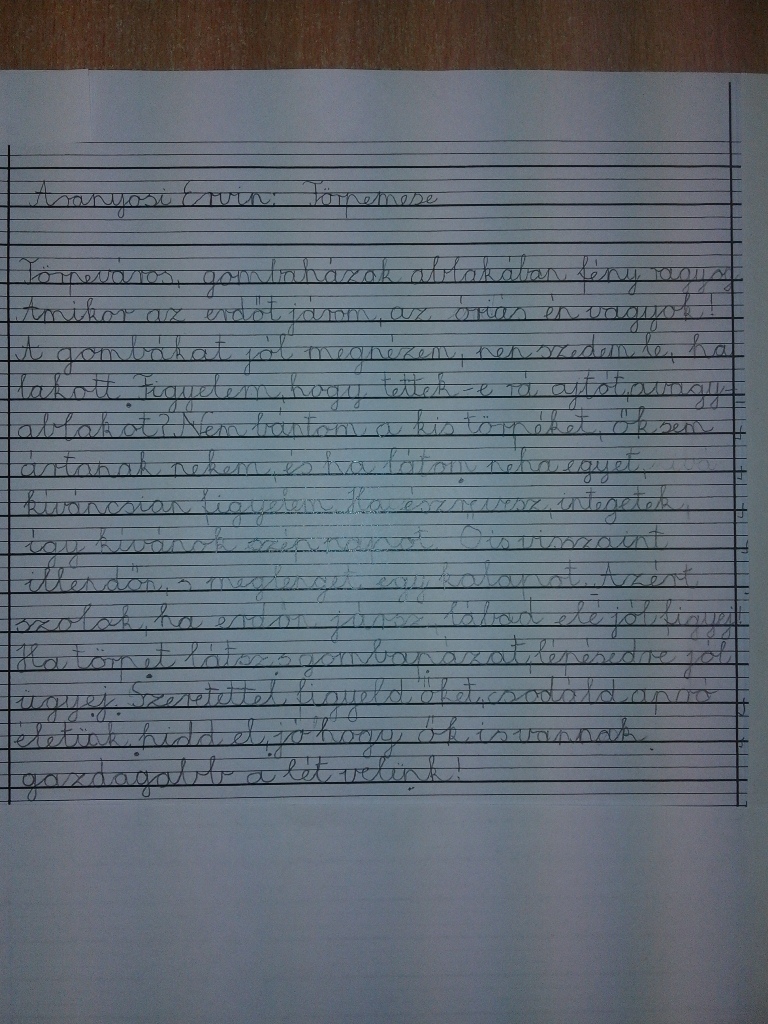 Aranyosi Ervin: Törpemese
Törpeváros, gombaházak ablakában fény ragyog
Amikor az erdőt járom, az óriás én vagyok!
A gombákat jól megnézem, nem szedem le, ha
lakott. Figyelem, hogy tettek-e rá ajtót, avagy
ablakot? Nem bántom a kis törpéket, ők sem
ártanak nekem, és ha látom néha egyet,
kíváncsian figyelem. Ha észrevesz, integetek,
így kívánok szép napot. Ő is visszaint
illendőn, s meglenget egy kalapot. Azért
szolok, ha erdőn jársz, lábad elé jól figyelj!
Ha törpét látsz, s gombaházat, lépésedre jól
ügyej. Szeretettel figyeld őket, csodáld apró
életük, hidd el, jó hogy ők is vannak
gazdagabb a lét velünk!